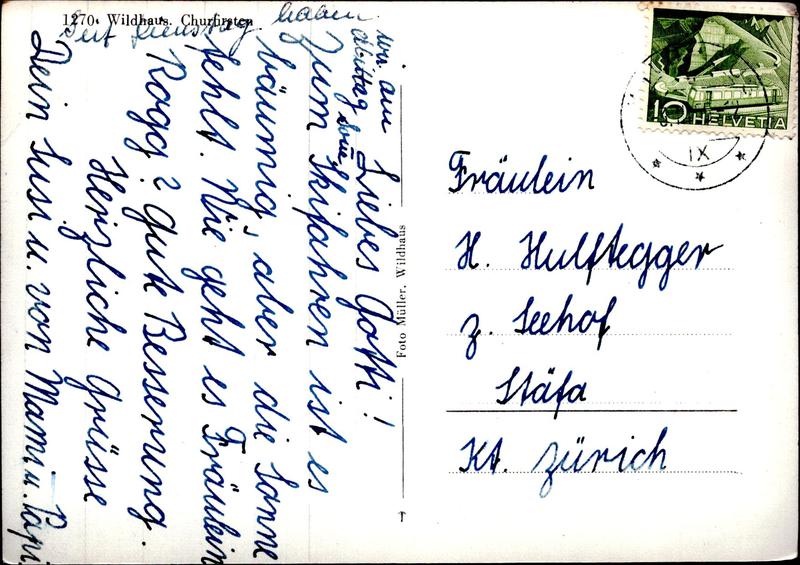 1270. Wildhaus. Churfirsten
Liebes Gotti!
Zum Skifahren ist es
bäumig, aber die Sonne
fehlt. Wie geht es Fräulein
Rogg? Gute Besserung.
Herzliche Grüsse
Dein Susi u. von Mami u. Papi.
Seit Dienstag haben
wir am
Mittag
Foto Müller, Wildhaus
Fräulein
H. Hulftegger
z. Seehof
Stäfa
Kt. Zürich
10 HELVETIA
IX